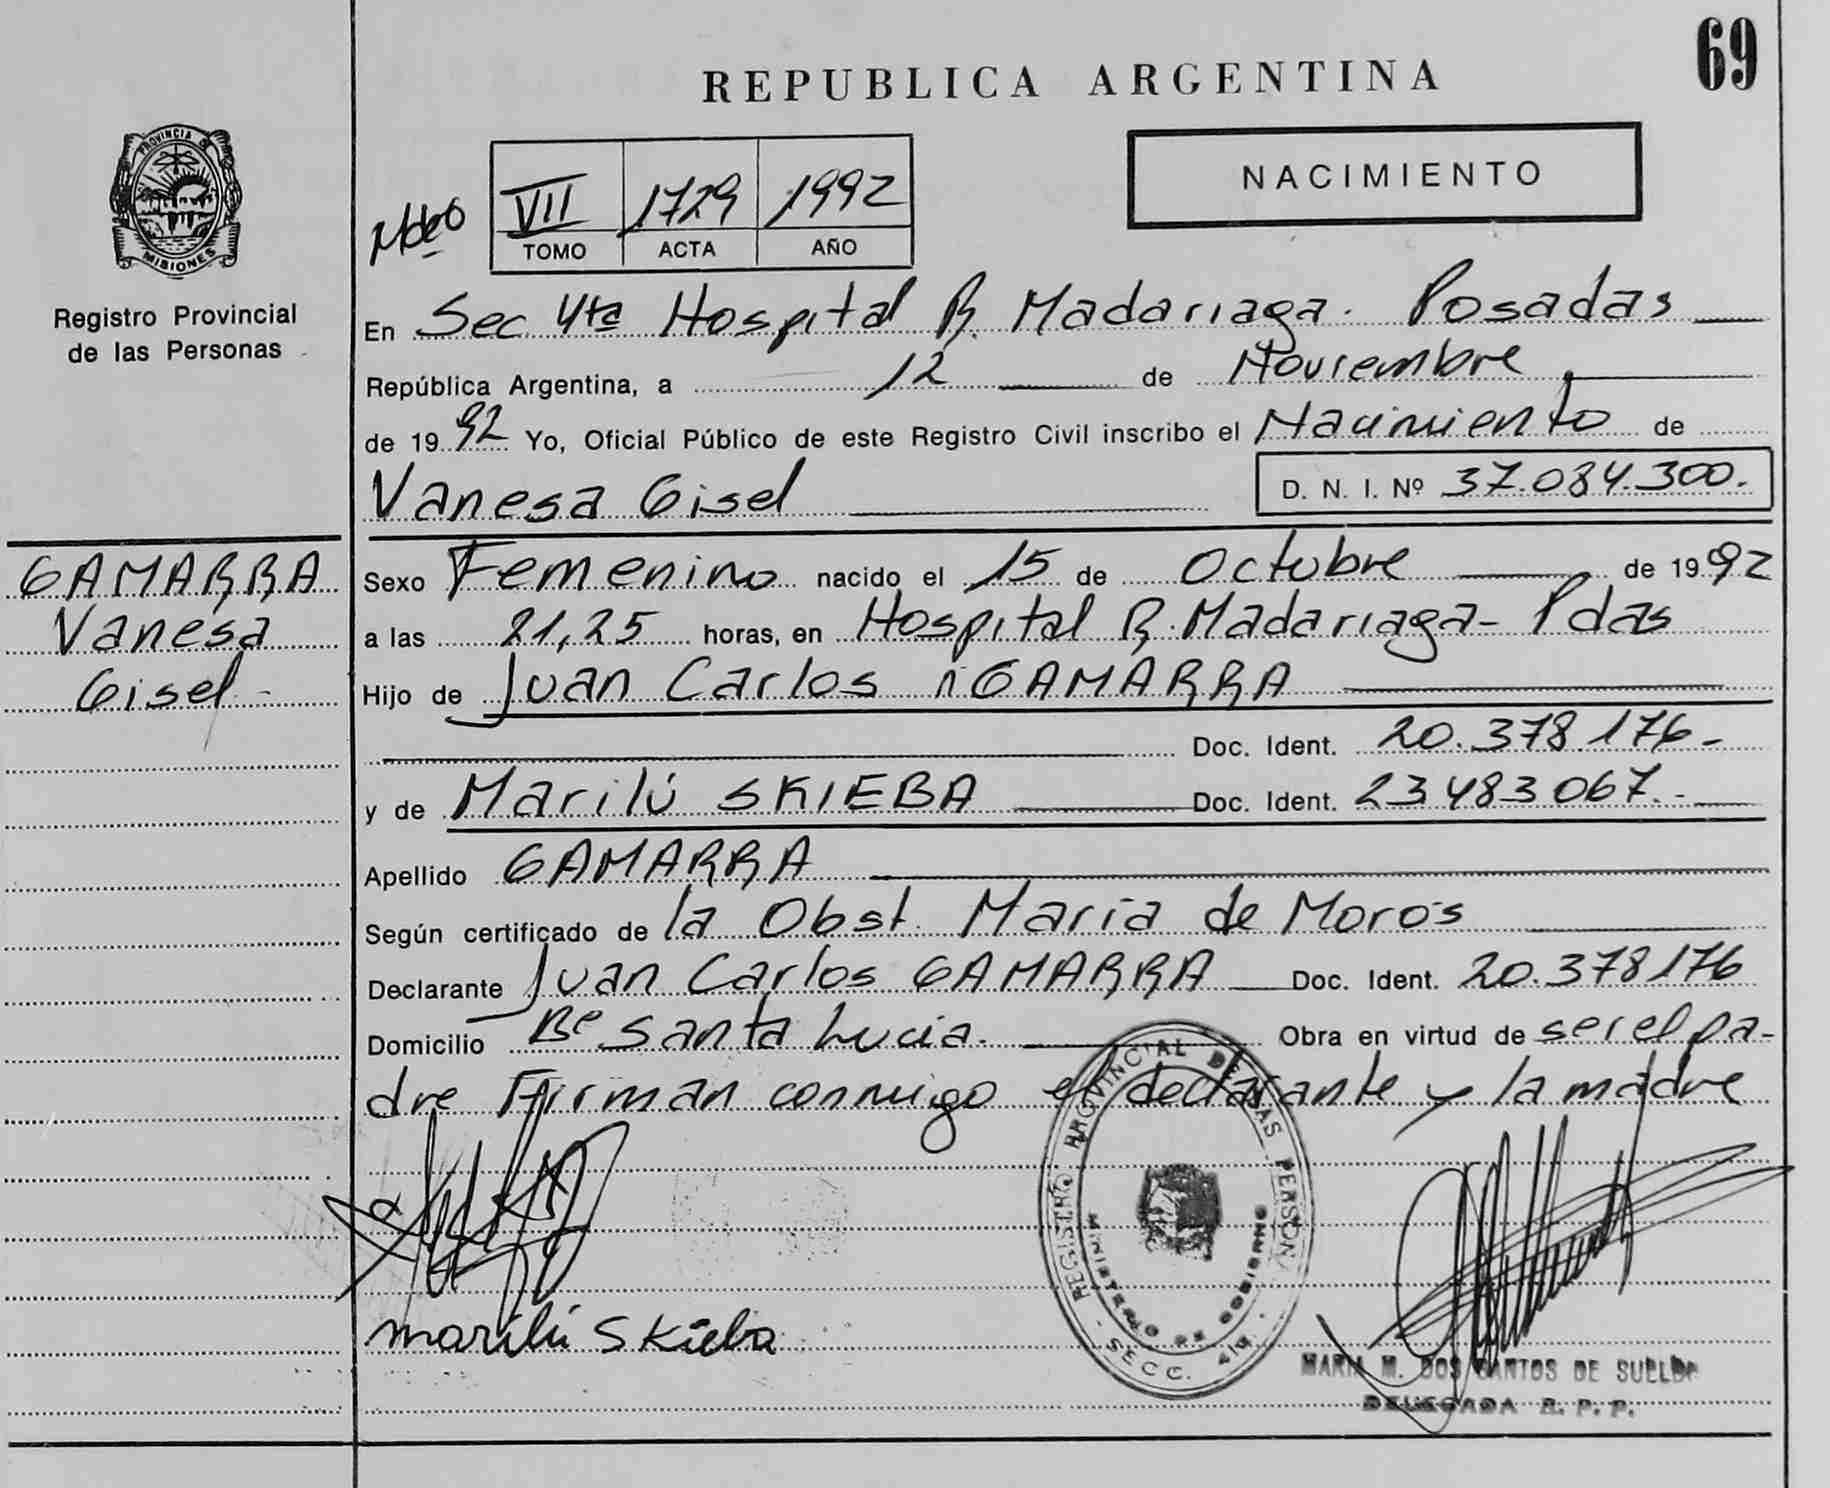 69
REPUBLICA ARGENTINA
NACIMIENTO
PROVINCIA DE
MISIONES
Registro Provincial
de las Personas
VII 1729 1992
TOMO ACTA AÑO
En Sec 4ta Hospital R. Madariaga. Posadas
República Argentina, a 12 de Noviembre
de 1992 Yo, Oficial Público de este Registro Civil inscribo el Nacimiento de
Vanesa Gisel D. N. I. Nº 37.084.300.
GAMARRA
Vanesa
Gisel-
Sexo Femenino nacido el 15 de Octubre de 1992
a las 21,25 horas, en Hospital R. Madariaga- Pdas
Hijo de Juan Carlos GAMARRA
Doc. Ident. 20.378.176-
y de Marilú SKIEBA Doc. Ident. 23483067.-
Apellido GAMARRA
Según certificado de la Obst. Maria de Moros
Declarante Juan Carlos GAMARRA Doc. Ident. 20.378176
Domicilio Bº Santa Lucia. Obra en virtud de ser el pa-
dre Firman conmigo el declarante y la madre
REGISTRO PROVINCIAL DE LAS PERSONAS
MINISTERIO DE GOBIERNO
SECC. 4ta
marilú Skieba
MARIA M. DOS SANTOS DE SUELDO
DELEGADA R. P. P.